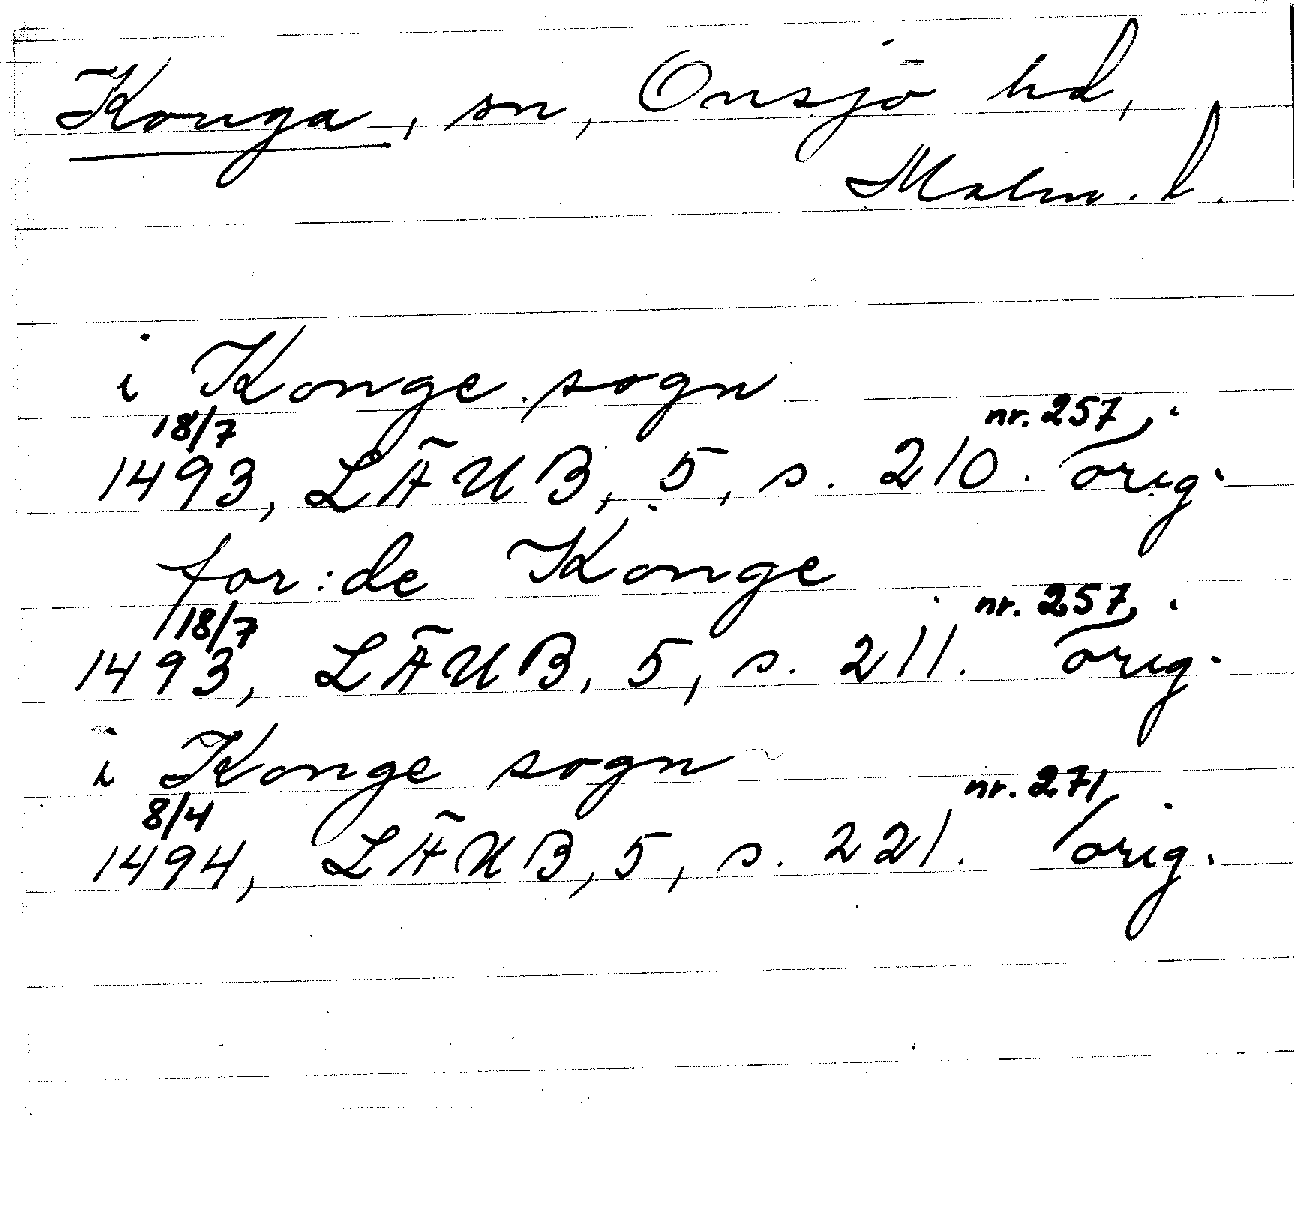 Konga, sn, Onsjö hd,
Malm. l.
i Konge sogn
18/7 nr. 257
1493, LÄUB, 5, s. 210. orig.
for:de Konge
18/7 nr. 257
1493, LÄUB, 5, s. 211. orig.
i Konge sogn
8/4 nr. 271
1494, LÄUB, 5, s. 221. orig.